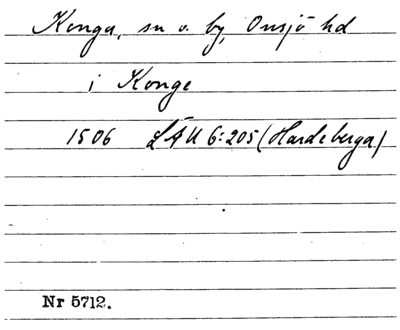 Konga, sn o. by, Onsjö hd
i Konge
1506 LÄU 6:205 (Hardeberga)
Nr 5712.